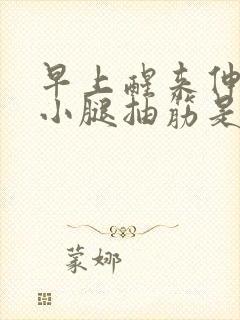 早上醒来伸
小腿抽筋是
蒙娜